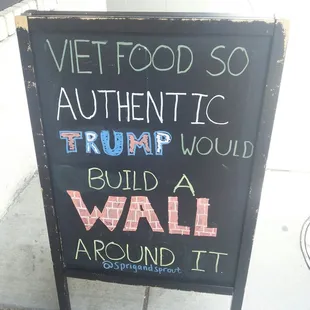 VIET FOOD SO
AUTHENTIC
TRUMP WOULD
BUILD A
WALL
AROUND IT
@sprigandsprout